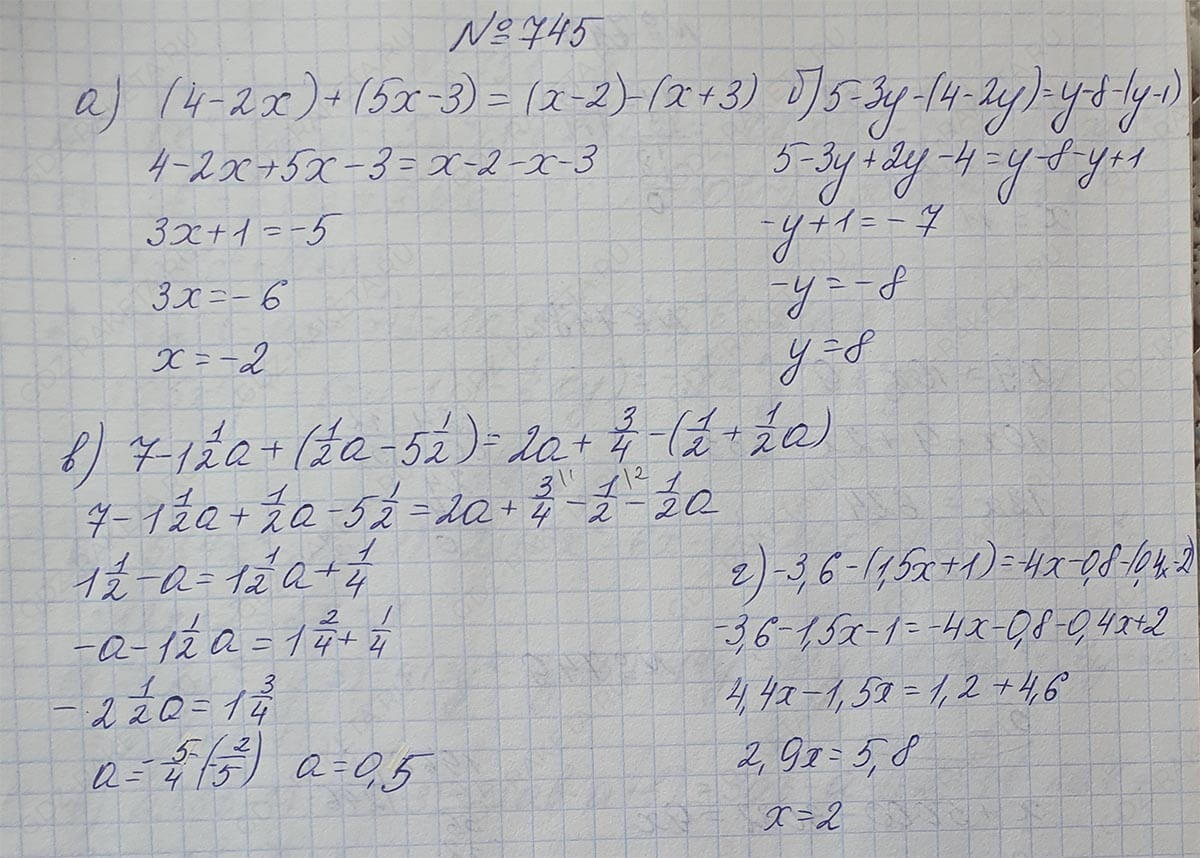 №745
а) (4-2x)+(5x-3)=(x-2)-(x+3)
4-2x+5x-3=x-2-x-3
3x+1=-5
3x=-6
x=-2
б) 5-3y-(4-2y)=y-8-(y-1)
5-3y+2y-4=y-8-y+1
-y+1=-7
-y=-8
y=8
в) 7-1 1/2a+(1/2a-5 1/2)=2a+3/4-(1/2+1/2a)
7-1 1/2a+1/2a-5 1/2=2a+3/4\1-1/2\2-1/2a
1 1/2-a=1 1/2a+1/4
-a-1 1/2a=1 2/4+1/4
-2 1/2a=1 3/4
a=-5/4(-2/5) a=0,5
г) -3,6-(1,5x+1)=-4x-0,8-(0,4x-2)
-3,6-1,5x-1=-4x-0,8-0,4x+2
4,4x-1,5x=1,2+4,6
2,9x=5,8
x=2